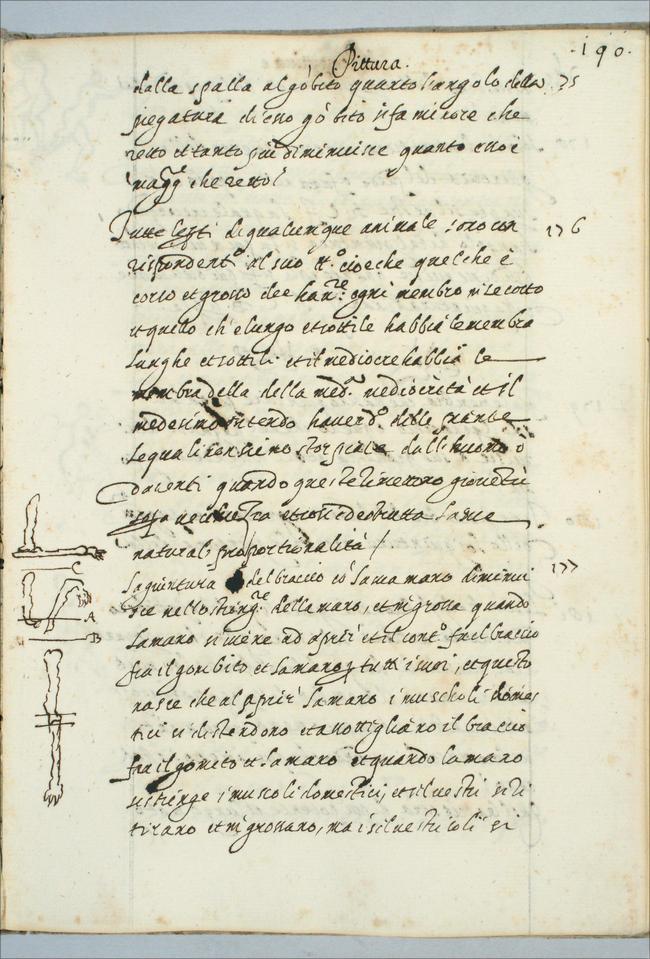 Pittura. 190.
dalla spalla al gobito quanto l'angolo della 175
piegatura di esso gobito si fa minore che
retto et tanto più diminuisce quanto esso è
magg. che retto
Tutte le parti di qualunque animale sono con 176
rispondenti al suo tt.º cioè che quel che è
corto et grosso dee havre ogni membro in se corto
et quello ch'è lungo et sottile habbia le membra
lunghe et sottili et il mediocre habbia le
membra della della med. mediocrità et il
medesimo intendo haver dº delle piante
le quali non sieno storpiate dall'huomo o
da venti quando queste
natural proportionalità
la giuntura del braccio cō la sua mano diminui 177
sce nello string.re della mano, et ingrossa quando
la mano si viene ad aprir et il contº fa il braccio
fra il gombito et la mano p tutti i versi, et questo
nasce che al aprir la mano i muscholi domes
tici si distendono et assottigliano il braccio
fra il gomito et la mano et quando la mano
si stringe i muscoli domestici, et silvestri si ri
tirano et ingrossano, ma i silvestri soli si
C
A
B